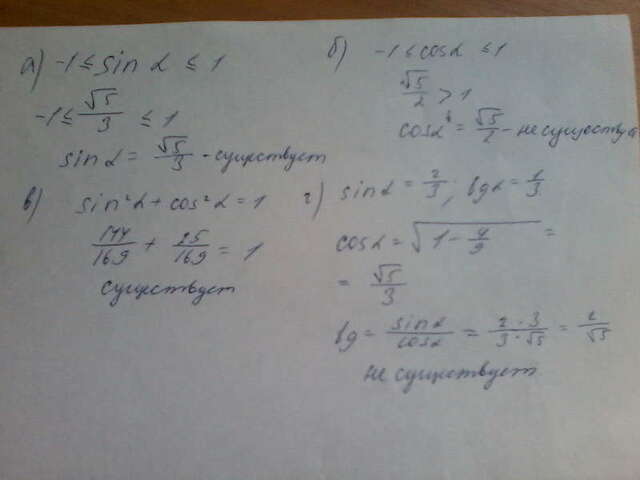 а) -1 ≤ sin α ≤ 1
-1 ≤ √5/3 ≤ 1
sin α = √5/3 - существует
б) -1 ≤ cos α ≤ 1
√5/2 > 1
cos α = √5/2 - не существует
в) sin²α + cos²α = 1
144/169 + 25/169 = 1
существует
г) sin α = 2/3; tg α = 1/3
cos α = √(1 - 4/9) =
= √5/3
tg = sin α/cos α = 2·3/3·√5 = 2/√5
не существует